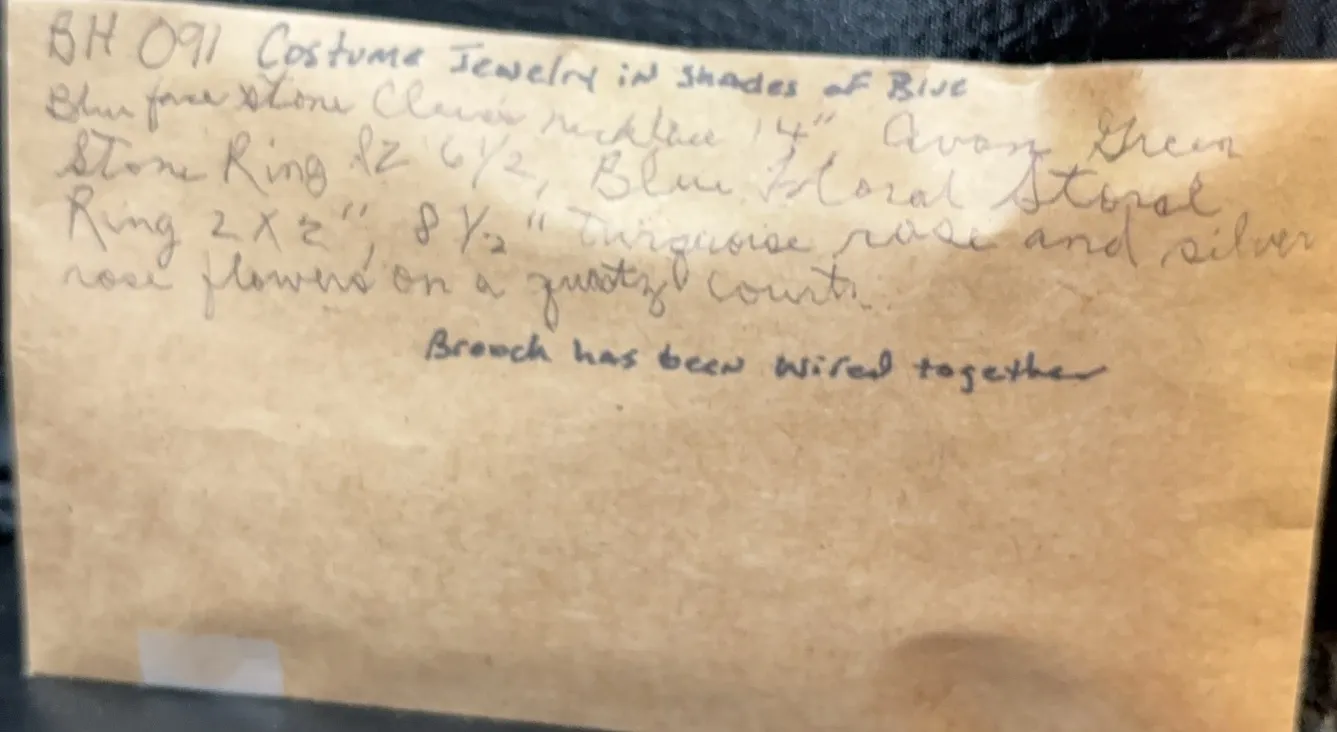 BH 091 Costume Jewelry in shades of Blue
Blue stone necklace 14" Avon Green
Stone Ring SZ 6 1/2, Blue Floral
Ring 2 X 2", 8 1/2" Turquoise rose and silver
rose flowers on a
Brooch has been wired together